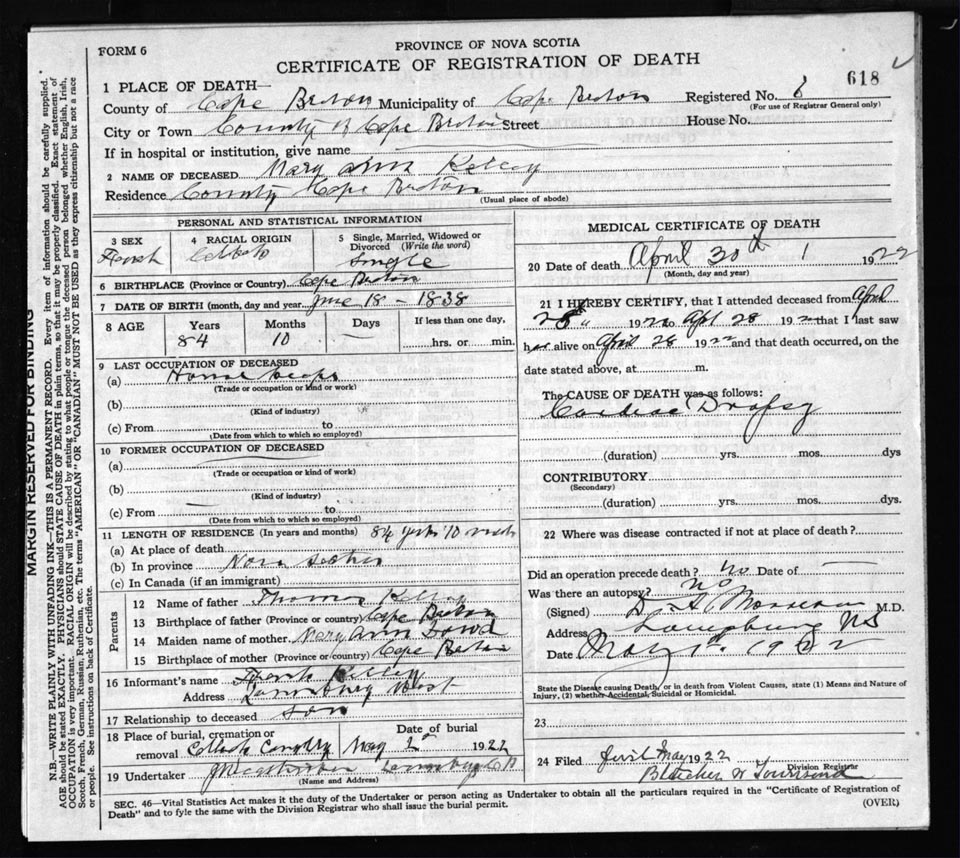 FORM 6
PROVINCE OF NOVA SCOTIA
CERTIFICATE OF REGISTRATION OF DEATH
618
1 PLACE OF DEATH—
County of Cape Breton Municipality of Cape Breton Registered No. 6
(For use of Registrar General only)
City or Town County Cape Breton Street House No.
If in hospital or institution, give name
2 NAME OF DECEASED Mary Ann Kelley
Residence County Cape Breton
(Usual place of abode)
PERSONAL AND STATISTICAL INFORMATION
3 SEX
4 RACIAL ORIGIN
5 Single, Married, Widowed or Divorced (Write the word)
Single
6 BIRTHPLACE (Province or Country) Cape Breton
7 DATE OF BIRTH (month, day and year) June 18 - 1838
8 AGE Years Months Days If less than one day,
84 10 hrs. or min.
9 LAST OCCUPATION OF DECEASED
(a) House
(Trade or occupation or kind of work)
(b)
(Kind of industry)
(c) From to
(Date from which to which so employed)
10 FORMER OCCUPATION OF DECEASED
(a)
(Trade or occupation or kind of work)
(b)
(Kind of industry)
(c) From to
(Date from which to which so employed)
11 LENGTH OF RESIDENCE (In years and months) 84 10
(a) At place of death
(b) In province Nova Scotia
(c) In Canada (if an immigrant)
Parents
12 Name of father Thomas Kelley
13 Birthplace of father (Province or country) Cape Breton
14 Maiden name of mother Mary Ann
15 Birthplace of mother (Province or country) Cape Breton
16 Informant's name Frank Kelley
Address Louisburg West
17 Relationship to deceased son
18 Place of burial, cremation or removal
Date of burial
May 2 1922
19 Undertaker Louisburg C B
(Name and Address)
MEDICAL CERTIFICATE OF DEATH
20 Date of death April 30th 1922
(Month, day and year)
21 I HEREBY CERTIFY, that I attended deceased from April
25 1922 to Apl 28 1922 that I last saw
her alive on April 28 1922 and that death occurred, on the
date stated above, at m.
The CAUSE OF DEATH was as follows:
Cardiac Dropsy
(duration) yrs. mos. dys
CONTRIBUTORY
(Secondary)
(duration) yrs. mos. dys.
22 Where was disease contracted if not at place of death?
Did an operation precede death? no Date of
Was there an autopsy? no
(Signed) M.D.
Address Louisburg NS
Date May 1st 1922
State the Disease causing Death, or in death from Violent Causes, state (1) Means and Nature of
Injury, (2) whether Accidental, Suicidal or Homicidal.
23
24 Filed May 1922
Townsend
Division Registrar
SEC. 46—Vital Statistics Act makes it the duty of the Undertaker or person acting as Undertaker to obtain all the particulars required in the "Certificate of Registration of
Death" and to fyle the same with the Division Registrar who shall issue the burial permit.
(OVER)
MARGIN RESERVED FOR BINDING
N.B.—WRITE PLAINLY WITH UNFADING INK—THIS IS A PERMANENT RECORD. Every item of information should be carefully supplied.
AGE should be stated EXACTLY. PHYSICIANS should STATE CAUSE OF DEATH in plain terms, so that it may be properly classified. Exact statement of
OCCUPATION is very important. RACIAL ORIGIN will be described by stating to what people or tongue the deceased person belonged whether English, Irish,
Scotch, French, German, Russian, Ruthenian, etc. The terms "AMERICAN" OR "CANADIAN" MUST NOT BE USED as they express citizenship but not a race
or people. See instructions on back of Certificate.